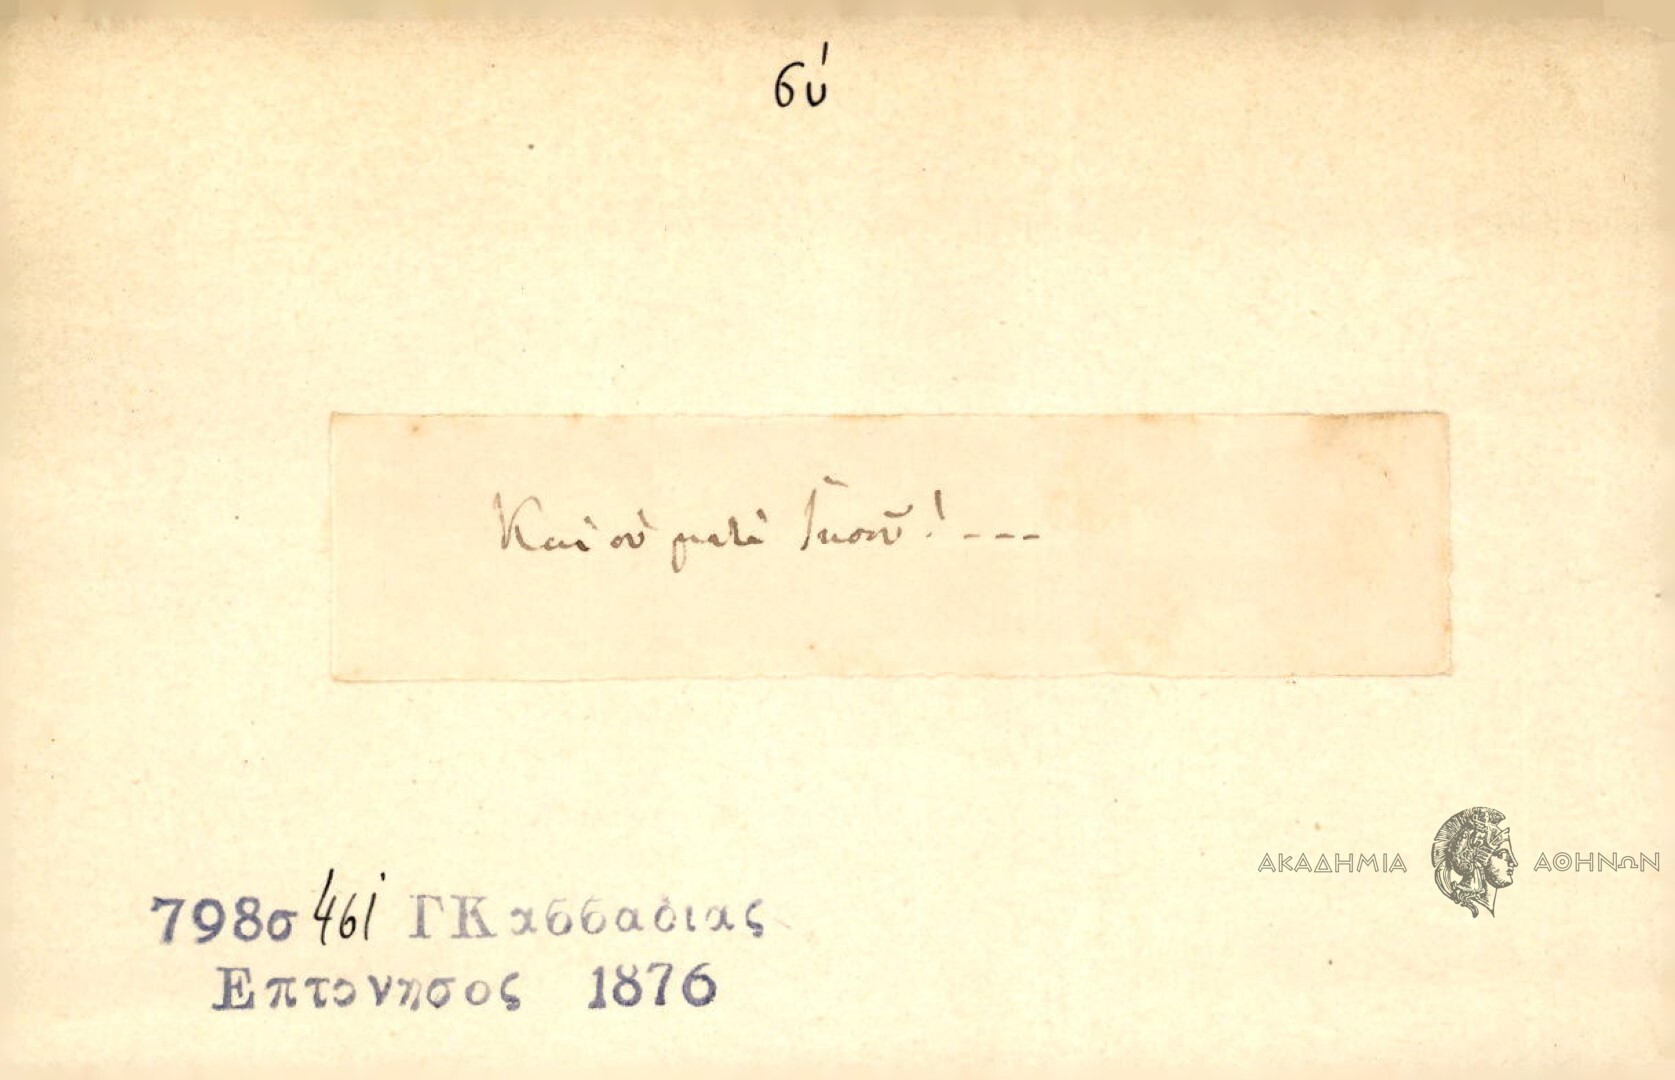 σύ
Καὶ σὺ μετὰ Ἰησοῦ! ---
798σ 461 ΓΚασσαδιας
Επτονησος 1876
ΑΚΑΔΗΜΙΑ ΑΘΗΝΩΝ